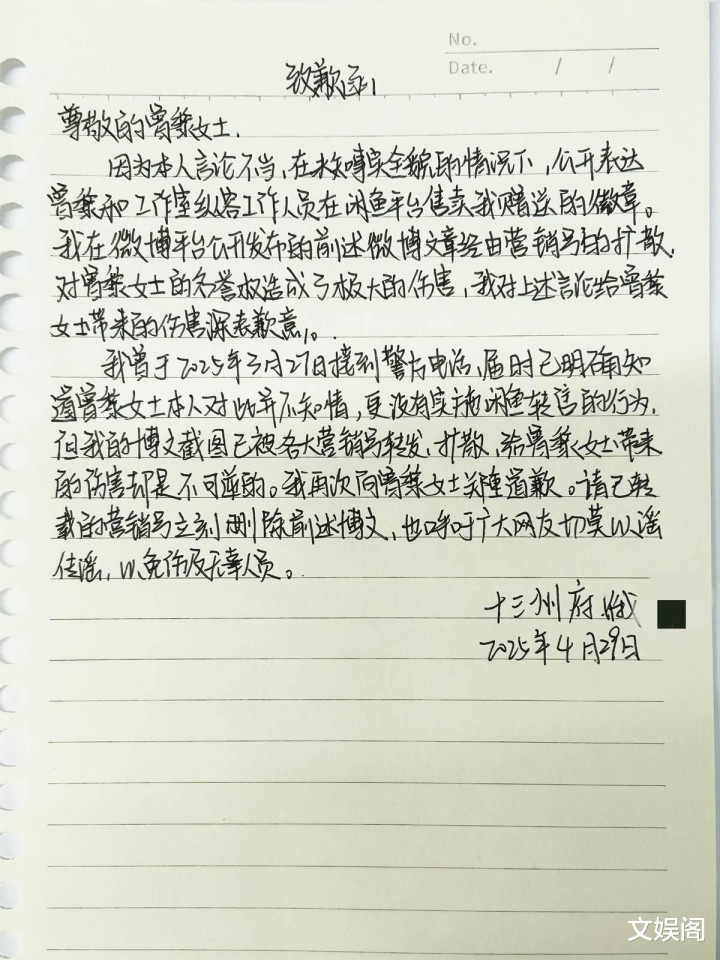 No.
Date. / /
致歉函
尊敬的曾黎女士.
因为本人言论不当,在未知事实全貌的情况下,公开表达
曾黎和工作室纵容工作人员在闲鱼平台售卖我赠送的徽章。
我在微博平台公开发布的前述微博文章经由营销号的扩散,
对曾黎女士的名誉权造成了极大的伤害,我对上述言论给曾黎
女士带来的伤害深表歉意。
我曾于2025年3月27日接到警方电话,届时已明确知
道曾黎女士本人对此并不知情,更没有实施闲鱼转售的行为,
但我的博文截图已被各大营销号转发、扩散,给曾黎女士带来
的伤害却是不可逆的。我再次向曾黎女士关道歉。请已转
载的营销号立刻删除前述博文,也呼吁广大网友切莫以谣
传谣,以免伤及无辜人员。
十三州府
2025年4月29日
文娱阁